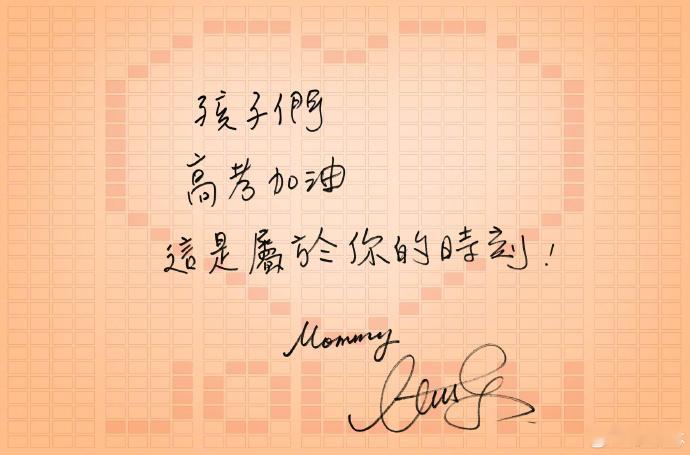 孩子們
高考加油
這是屬於你的時刻！
Mommy